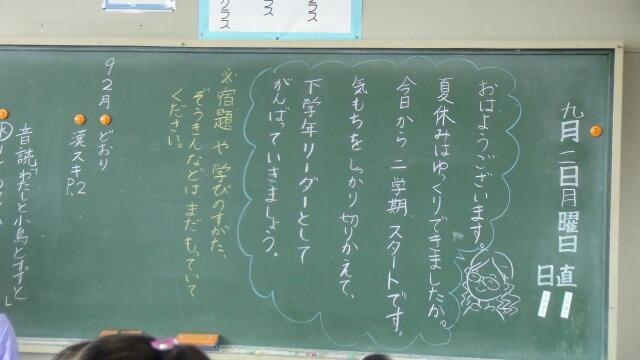 九月二日月曜日
日直
おはようございます。
夏休みはゆっくりできましたか。
今日から二学期スタートです。
気もちをしっかり切りかえて、
下学年リーダーとして
がんばっていきましょう。
※宿題や学びのすがた、
ぞうきんなどはまだもっていて
ください。
9月
2
どおり
漢スキP.2
音読「わたしと小鳥とすずと」
クラス
クラス
クラス